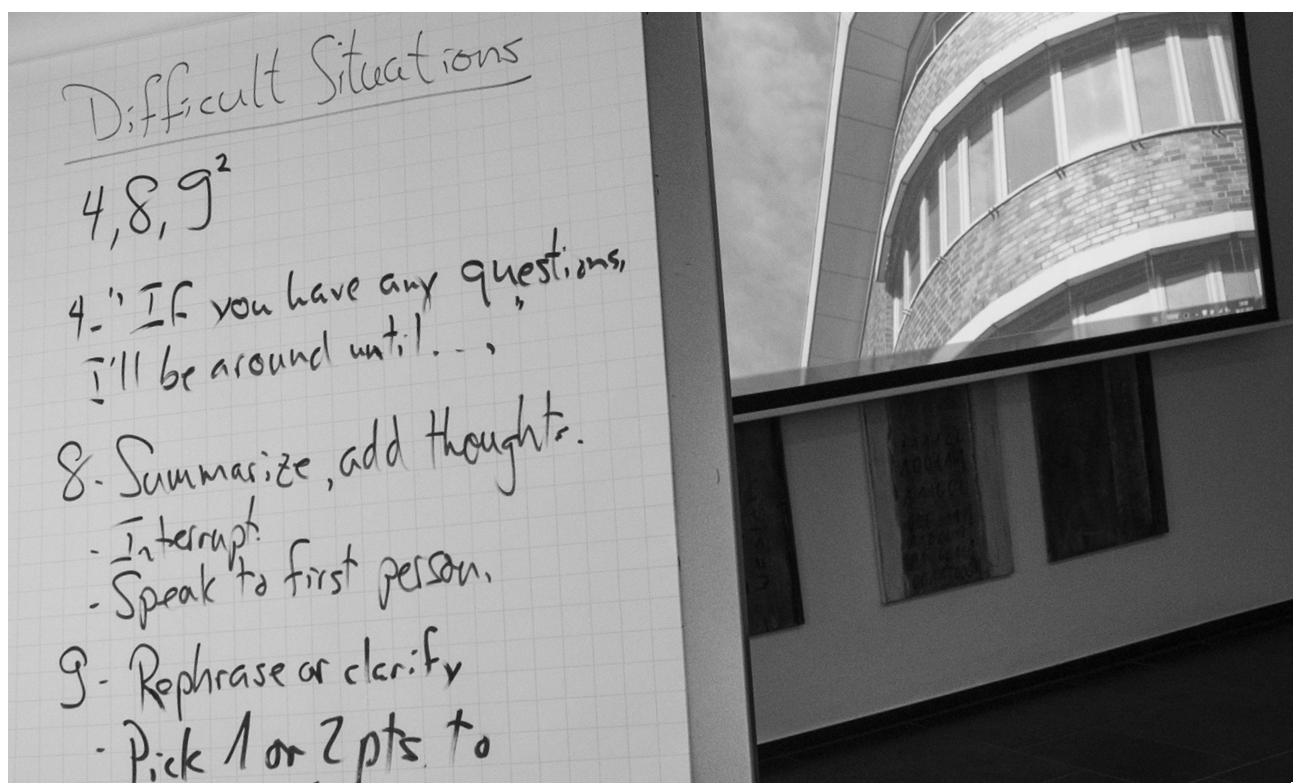 Difficult Situations
4, 8, 9²
4-" If you have any questions,
I'll be around until..."
8- Summarize, add thoughts.
- Interrupt.
- Speak to first person.
9- Rephrase or clarify
- Pick 1 or 2 pts. to